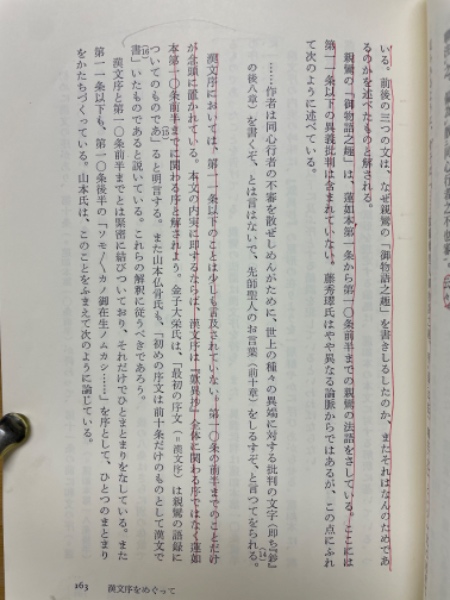 いる。前後の三つの文は、なぜ親鸞の「御物語之趣」を書きしるしたのか、またそれはなんのためであ
るのかを述べたものと解される。
親鸞の「御物語之趣」は、蓮如本第一条から第一〇条前半までの親鸞の法語をさしている。ここには
第一一条以下の異義批判は含まれていない。藤秀璻氏はやや異なる論脈からではあるが、この点にふれ
て次のように述べている。
……作者は同心行者の不審を散ぜしめんがために、世上の種々の異端に対する批判の文字（即ち『鈔』
の後八章）を書くぞ、とは言はないで、先師聖人のお言葉（前十章）をしるすぞ、と言つてをられる。
(14)
漢文序においては、第一一条以下のことは少しも言及されていない。第一〇条の前半までのことだけ
が念頭に置かれている。本文の内実に即するならば、漢文序は『歎異抄』全体に関わる序ではなく蓮如
本第一〇条前半までに関わる序と解されよう。金子大栄氏は、「最初の序文（＝漢文序）は親鸞の語録に
ついてのものであ」(15)ると明言する。また山本仏骨氏も、「初めの序文は前十条だけのものとして漢文で
書」(16)いたものであると説いている。これらの解釈に従うべきであろう。
漢文序と第一〇条前半までとは緊密に結びついており、それだけでひとまとまりをなしている。また
第一一条以下も、第一〇条後半の「ソモ〳〵カノ御在生ノムカシ……」を序として、ひとつのまとまり
をかたちづくっている。山本氏は、このことをふまえて次のように論じている。
263　漢文序をめぐって